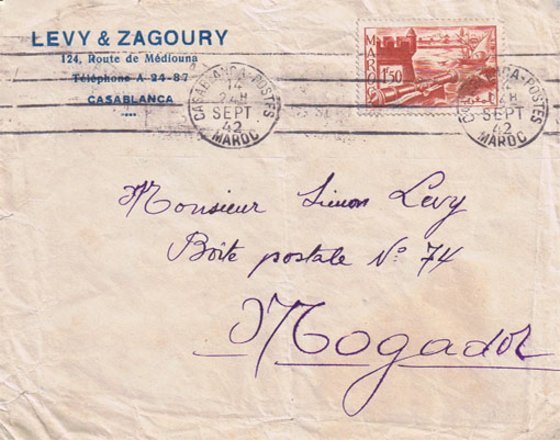 LEVY & ZAGOURY
124, Route de Médiouna
Téléphone A-24-87
CASABLANCA
MAROC
1F50
CASABLANCA-POSTES
14
24H
SEPT
42
MAROC
CASABLANCA-POSTES
24H
SEPT
42
MAROC
Monsieur Simon Levy
Boîte postale N° 74
Mogador